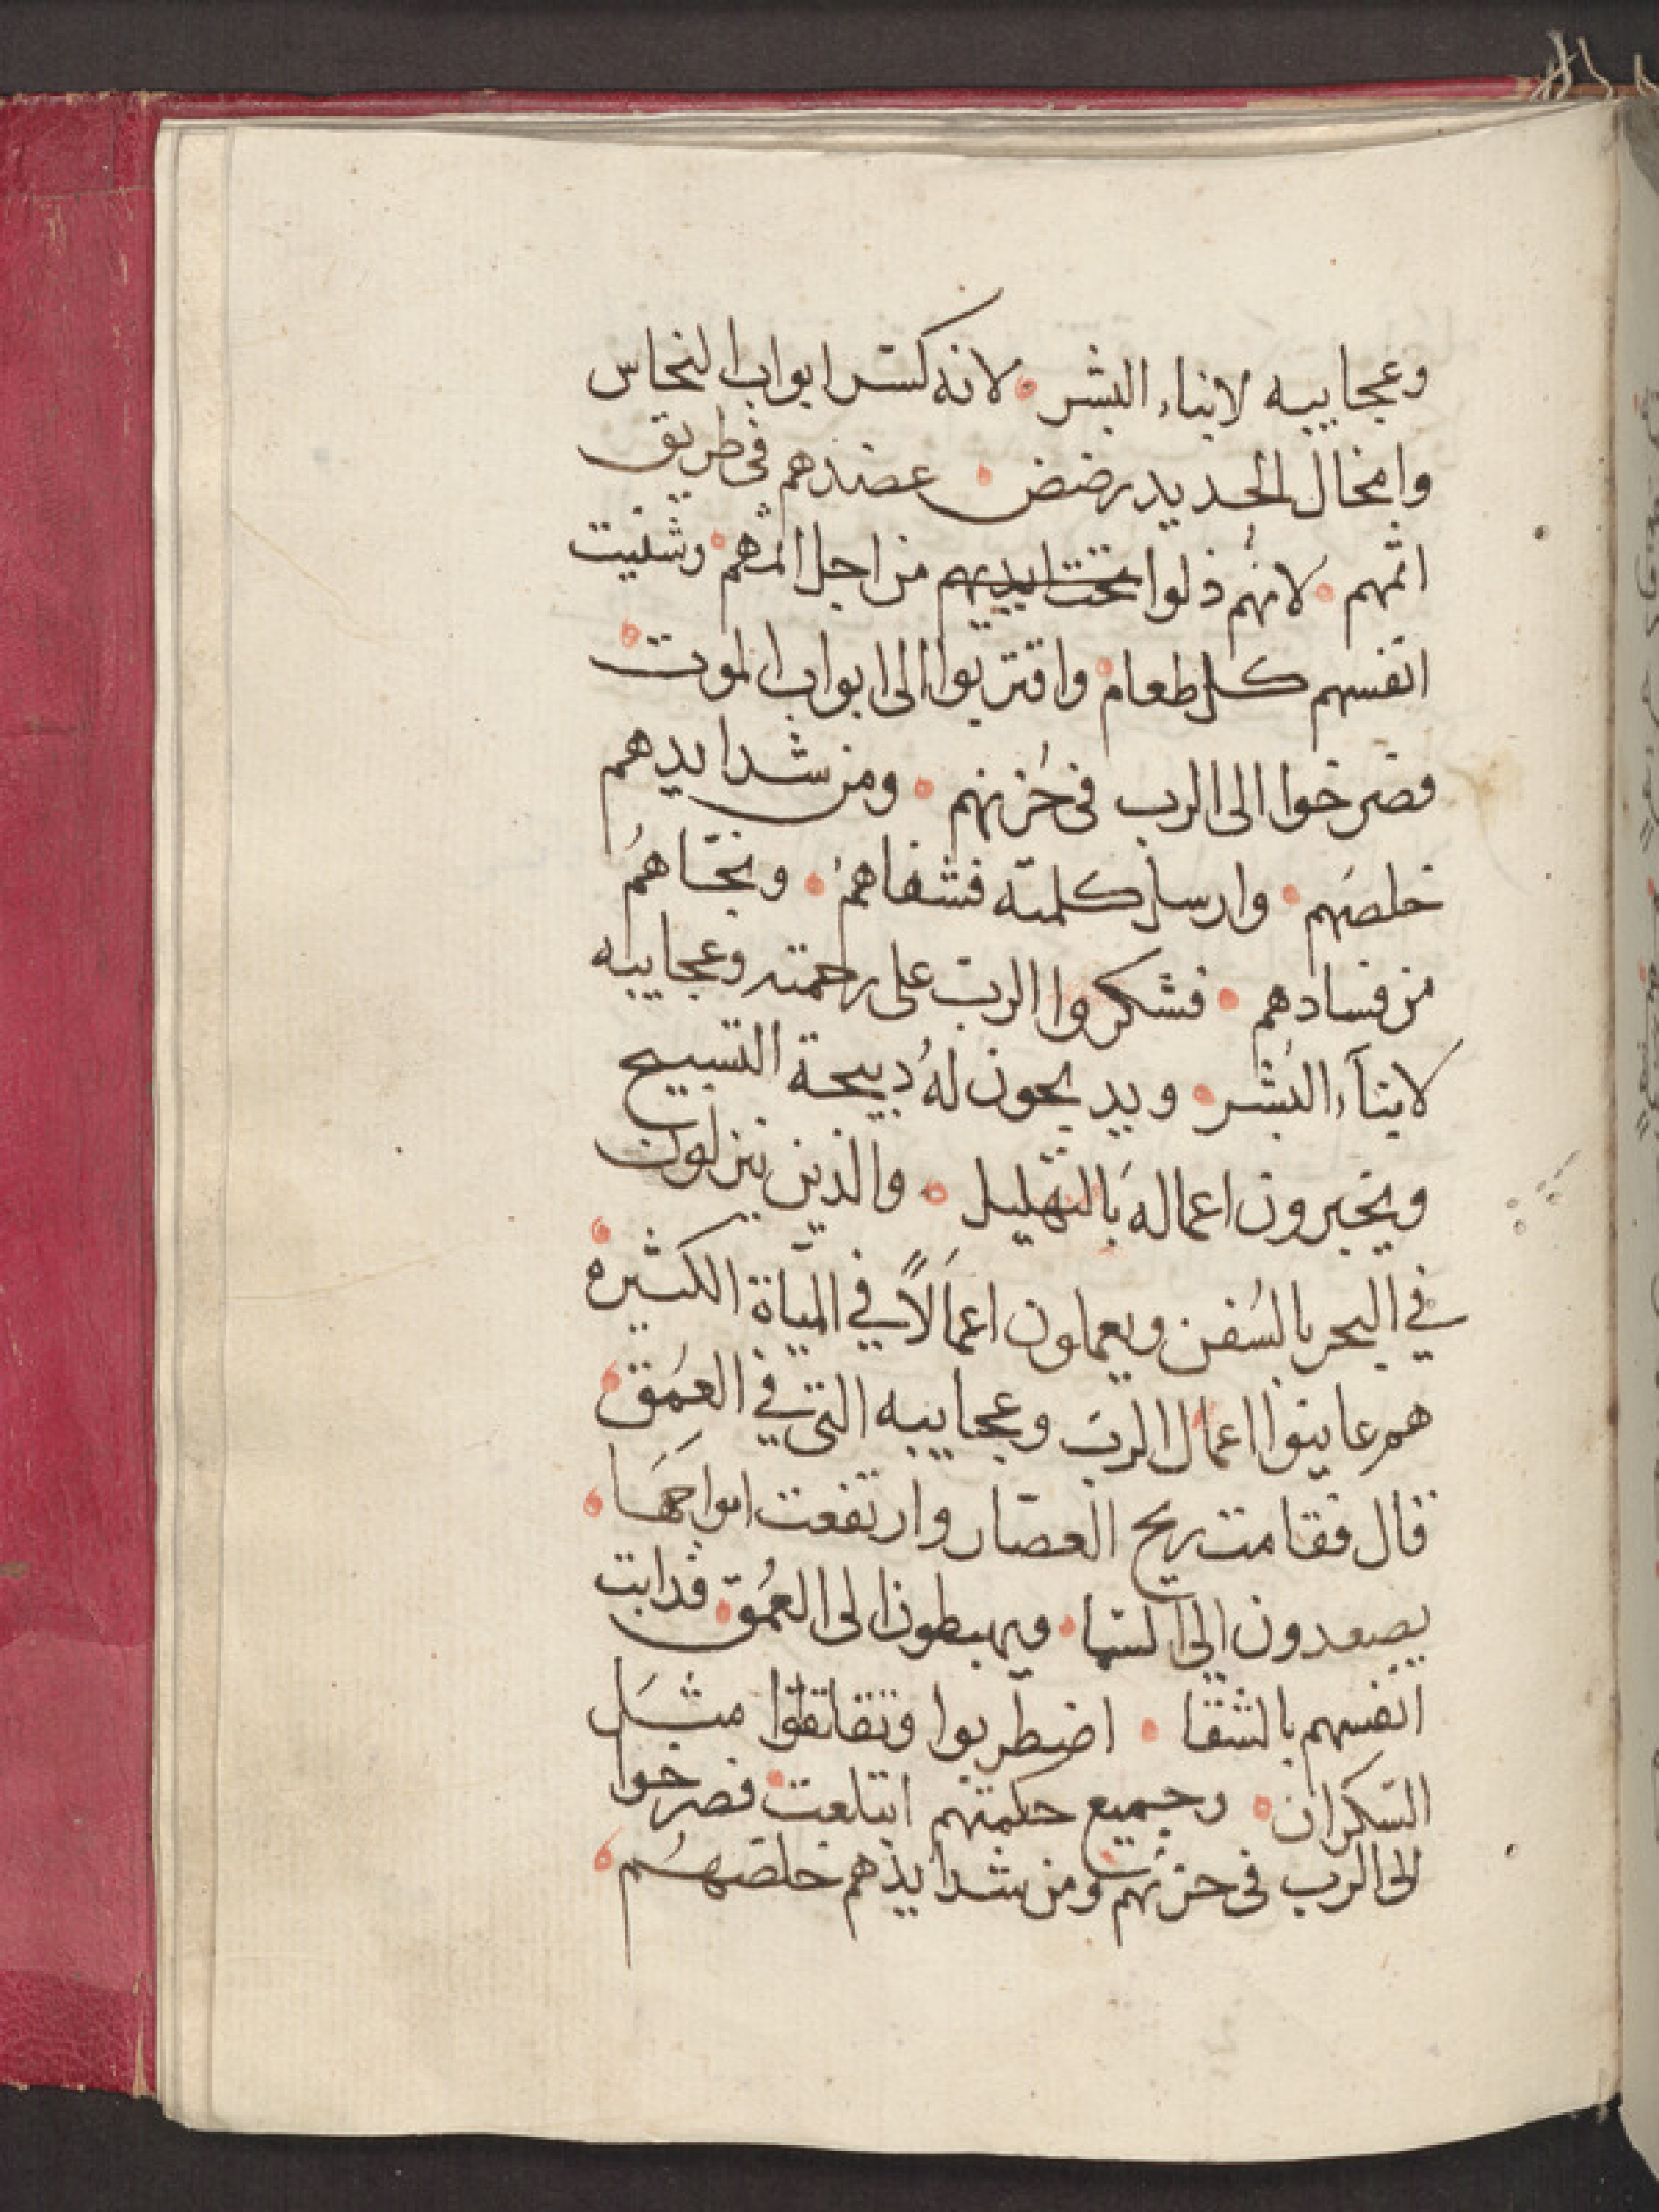 وعجايبه لابناء البشر لانه كسر ابواب النحاس
وامخال الحديد رضض عضدهم في طريق
اثمهم لانهم ذلوا تحت ايديهم من اجل اثمهم وشنيت
انفسهم كل طعام واقتربوا الى ابواب الموت
فصرخوا الى الرب في حُزنهم ومن شدايدهم
خلصَهم وارسل كلمته فشفاهمُ ونجّاهمُ
من فسادهم فشكروا الربّ على رحمته وعجايبه
لابنآء البُشر ويدبحون لهُ دبيحة التسبيح
ويخبرون اعماله بَالتهليل والذين ينزلون
في البحر بالسُفن ويعملون اعمَالاً في الميَاة الكثيره
هم عاينوا اعمال الربَ وعجايبه التي في العمُق
قال فقامت ريح العصّار وارتفعت امواجهَا
يصعدون الى السّما ويهبطون الى العُمق فدابت
انفسهم بالشقا اضطربوا وتقلقلوا مثَل
السّكران وجميع حكمتهم ابتلعت فصرخوا
الى الرب في حزنهم ومن شدايدهم خلصهُم